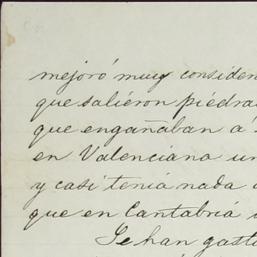 mejoró muy consider
que saliéron piédra
que engañaban á
en Valenciana un
y casi teniá nada
que en Cantabriá
Se han gasta